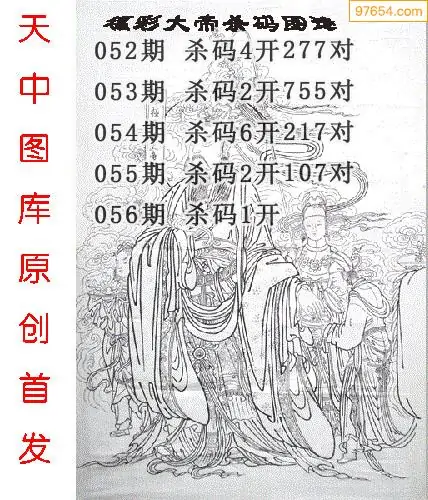 97654.com
福彩大帝杀码图迷
052期 杀码4开277对
053期 杀码2开755对
054期 杀码6开217对
055期 杀码2开107对
056期 杀码1开
天中图库原创首发